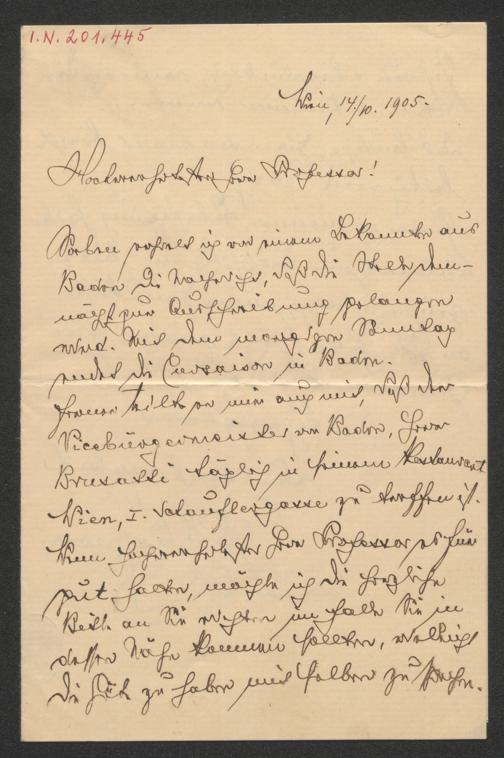 I.N. 201.445
Wien, 14./10. 1905.
Hochverehrtester Herr Professor!
Soeben erhielt ich von einem Bekannten aus
Baden die Nachricht, daß die Stelle dem-
nächst zur Ausschreibung gelangen
wird. Mit dem morgigen Sonntag
endet die Cursaison in Baden.
Ferner teilte er mir auch mit, daß der
Vicebürgermeister von Baden, Herr
Brusatti täglich in seinem Restaurant
Wien, I. Schauflergasse zu treffen ist.
Wenn hochverehrtester Herr Professor es für
gut halten, möchte ich die herzliche
Bitte an Sie richten im Falle Sie in
dessen Nähe kommen sollten, vielleicht
die Güte zu haben mit selben zu sprechen.